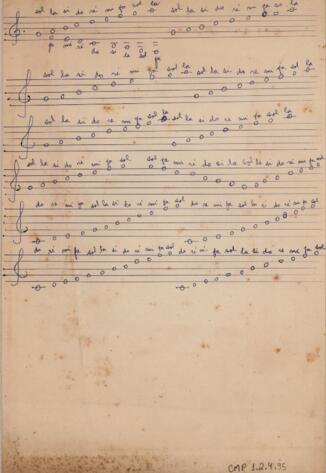 sol la si do re mi fa sol la sol la si do re mi fa sol la
fa mi re do si la sol fa
sol la si do re mi fa sol la sol la si do re mi fa sol la
sol la si do re mi fa sol la sol la si do re mi fa sol la
sol la si do re mi fa sol sol fa mi re do si la sol la si do re mi fa sol
do re mi fa sol la si do re mi fa sol do re mi fa sol la si do re mi fa sol
do re mi fa sol la si do re mi fa sol do re mi fa sol la si do re mi fa sol
CMP 1.2.4.95